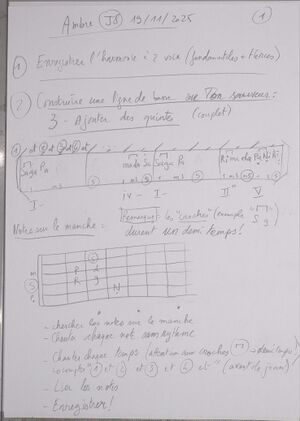 Ambre (J8) 19/11/2025 (1)
① Enregistrer l'harmonie à 2 voix (fondamentales + tierces)
② Construire une ligne de basse sur Ton souvenir :
3 - Ajouter des quintes (couplet)
① et ② et ③ et ④ et
Saga Pa
I-
IV- I-
II V
Notes sur le manche :
Remarque : les "croches" (exemple
durent un demi temps !
- chercher les notes sur le manche
- Chanter chaque note sans rythme
- Chanter chaque temps (attention aux croches → demi temps)
- compter "① et ② et ③ et ④ et" (avant de jouer)
- Lier les notes
- Enregistrer !